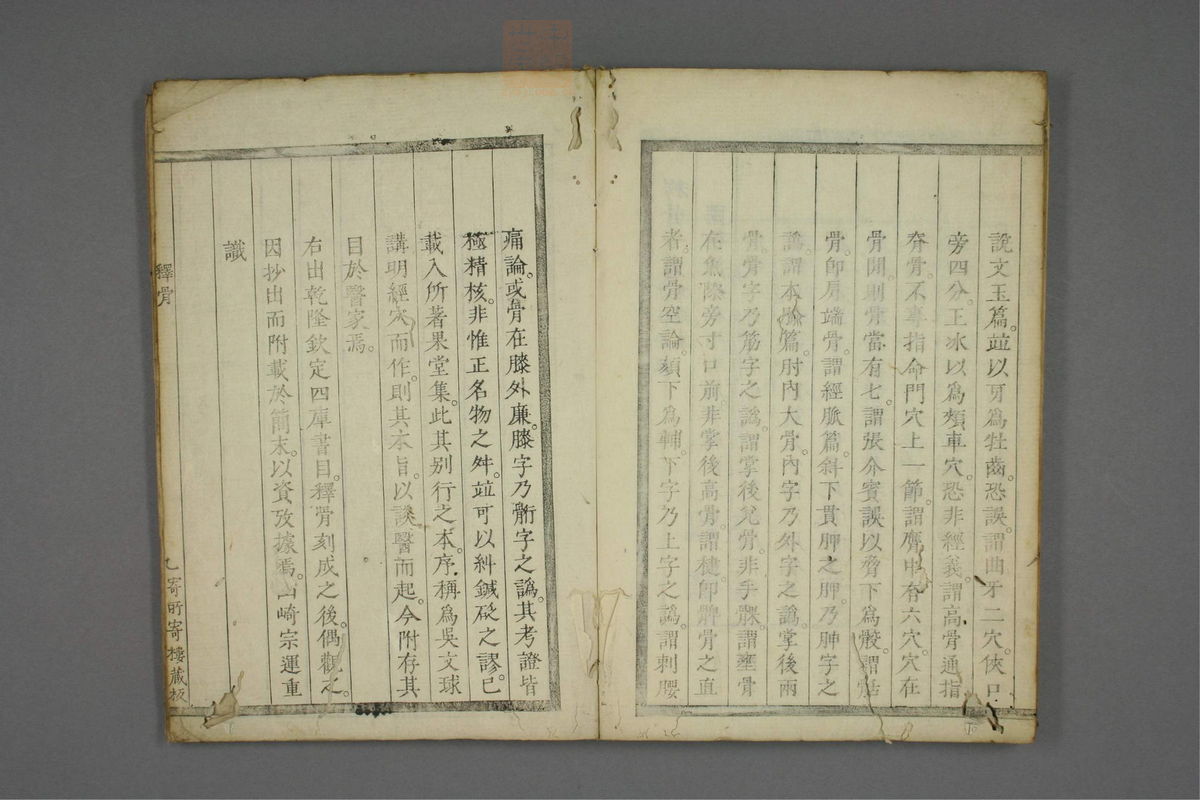 說文玉篇。竝以牙爲牡齒。恐誤。謂曲牙二穴。俠口
旁四分。王冰以爲頰車穴。恐非經義。謂高骨通指
脊骨。不專指命門穴上一節。謂齊中有六穴。穴在
骨間。則骨當有七。謂張介賓誤以脊下爲骰。謂
骨。卽肩端骨。謂經脈篇。斜下貫胛之胛。乃胂字之
譌。謂本輸篇。肘內大骨。內字乃外字之譌。掌後兩
骨。骨字乃筋字之譌。謂掌後兌骨。非手髁。謂壅骨
在魚際旁寸口前。非掌後高骨。謂楗。卽髀骨之直
者。謂骨空論。頰下爲輔。下字乃上字之譌。謂刺腰
痛論。或骨在膝外廉。膝字乃䯒字之譌。其考證皆
極精核。非惟正名物之舛。竝可以糾鍼砭之謬。已
載入所著果堂集。此其別行之本。序稱爲吳文球
講明經穴而作。則其本旨。以談醫而起。今附存其
目於醫家焉。
右出乾隆欽定四庫書目。釋骨刻成之後。偶觀之。
因抄出而附載於簡末。以資攷據焉。山崎宗運重
識
釋骨
寄所寄樓藏板